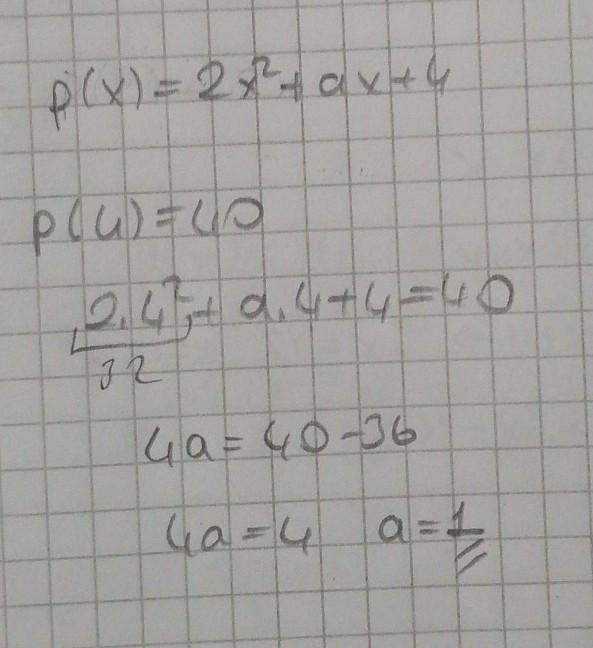 p(x) = 2x² + ax + 4
p(4) = 40
2.4² + a.4 + 4 = 40
32
4a = 40 - 36
4a = 4 a = 1